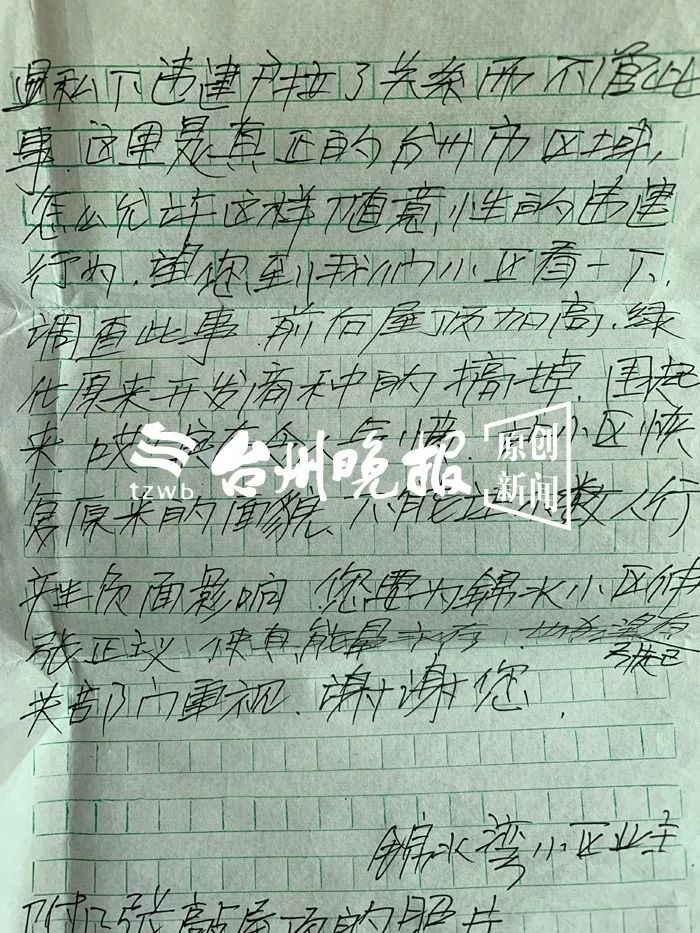 是私下违建户拉了关系而不管此
事.这里是真正的台州市区域,
怎么允许这样随意性的违建
行为.望您到我们小区看一下.
调查此事.前后屋顶加高.绿
化原来开发商种的搞掉.围起
来.小区恢
tzwb 台州晚报 原创新闻
复原来的面貌.不能数人行
产生负面影响.您要为锦水小区伸
张正义.使真能量永存.
关部门重视.谢谢您.
锦水湾小区业主
附几张敲屋顶的照片